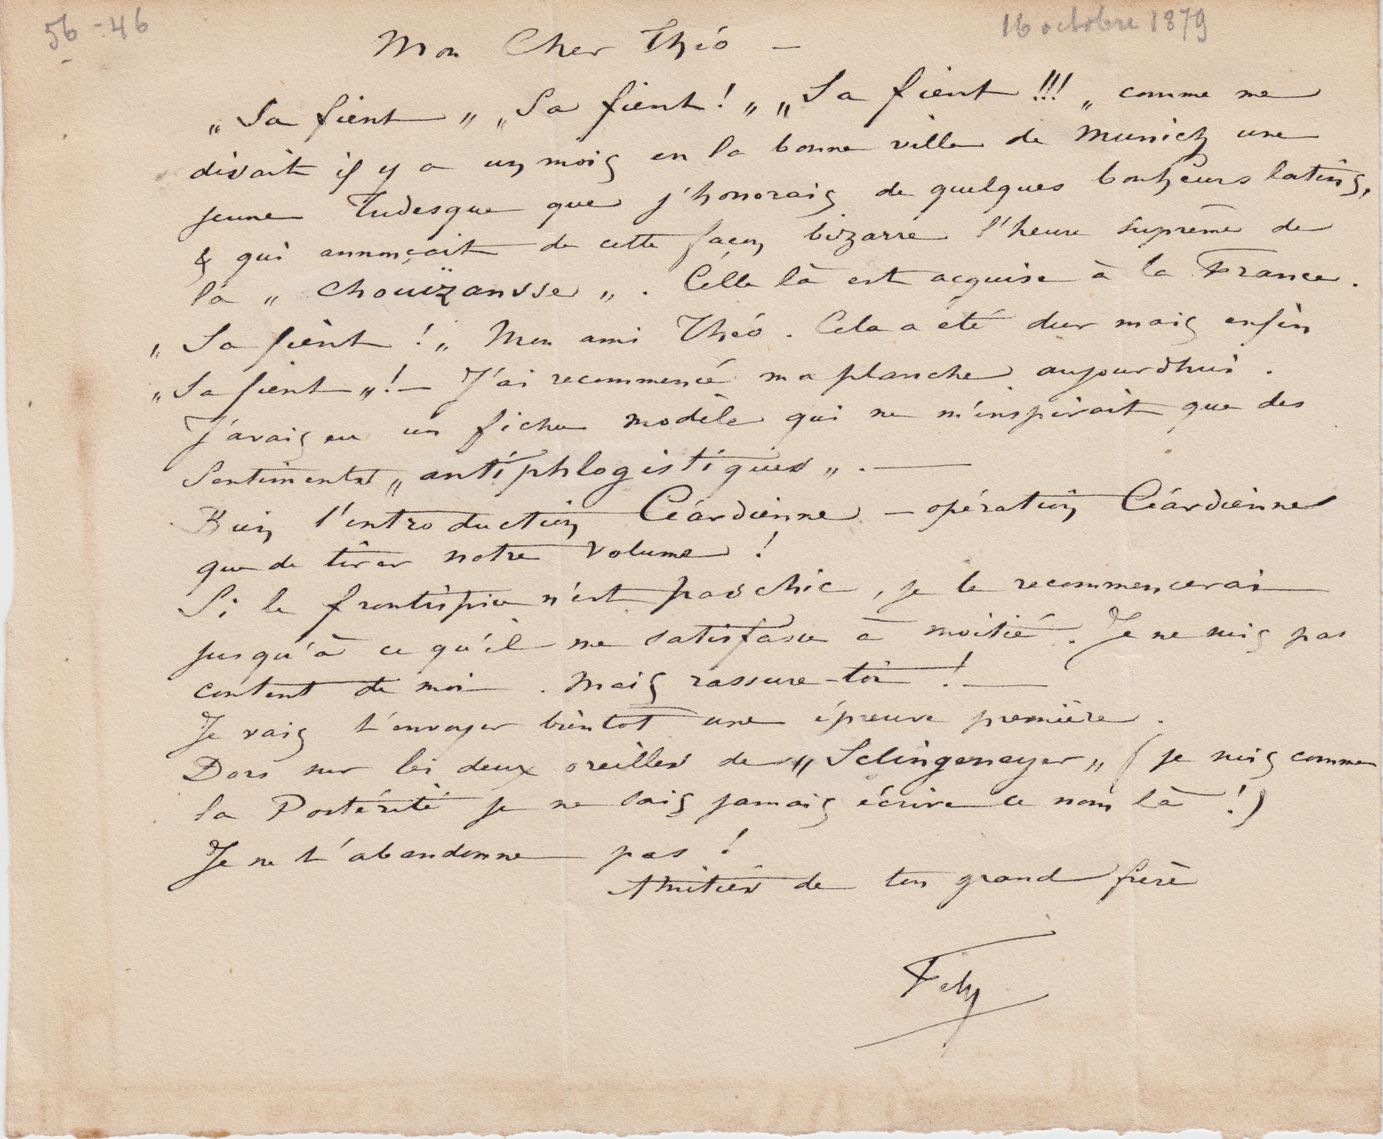 56-46
16 octobre 1879
Mon Cher Théo —
„Sa fient„ „Sa fient!„ „Sa fient!!!„ comme me
disait il y a un mois en la bonne ville de Munich une
jeune Tudesque que j'honorais de quelques bonheurs latins,
& qui annonçait de cette façon bizarre l'heure suprême de
la „chouïzansse„. Celle là est acquise à la France.
„Sa fient!„ Mon ami Théo. Cela a été dur mais enfin
„Sa fient„!— J'ai recommencé ma planche aujourdhui.
J'avais eu un fichu modèle qui ne m'inspirait que des
sentiments „antiphlogistiques„. —
Bien l'introduction Céardienne — opération Céardienne
que de tirer notre volume!
Si le frontispice n'est pas chic, je le recommencerai
jusqu'à ce qu'il me satisfasse à moitié. Je ne suis pas
content de moi. Mais rassure-toi! —
Je vais t'envoyer bientot une épreuve première.
Dors sur les deux oreilles de „Sclingeneyer„ (je suis comme
la Postérité je ne sais jamais écrire ce nom là!)
Je ne t'abandonne pas!
Amitiés de ton grand frère
Fély